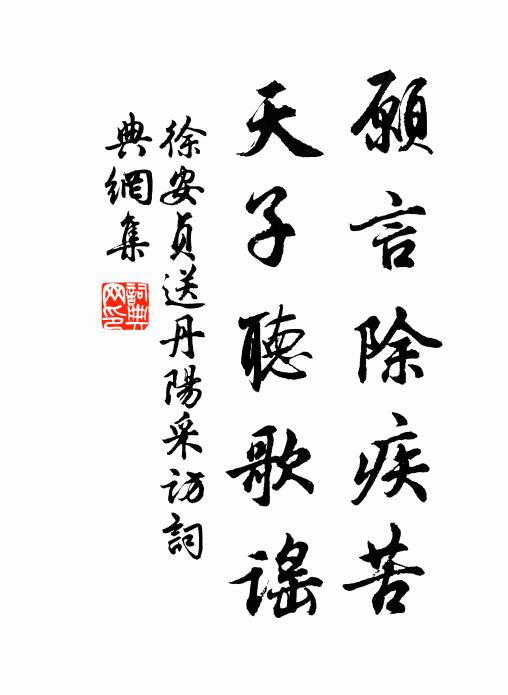 願言除疾苦
天子聽歌謠
徐安貞送丹陽采訪詞
典網集
詞典網印